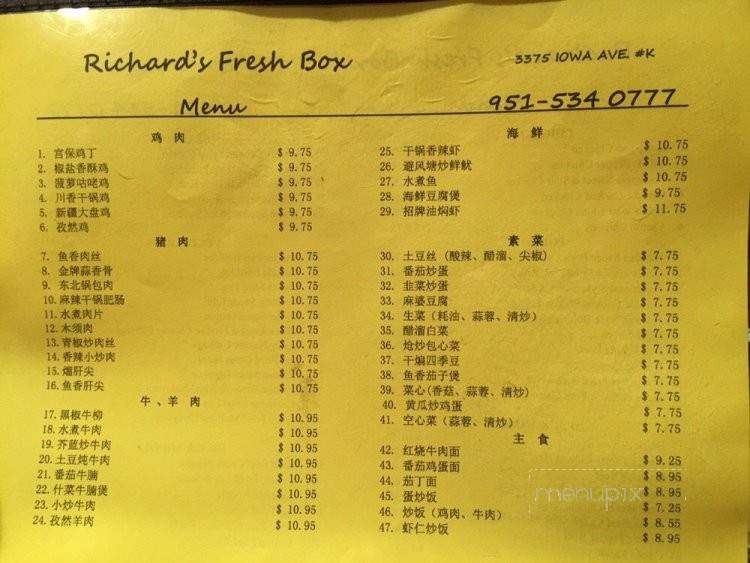 Richard's Fresh Box
3375 IOWA AVE. #K
Menu
951-534 0777
鸡 肉
1. 宫保鸡丁 $ 9.75
2. 椒盐香酥鸡 $ 9.75
3. 菠萝咕咾鸡 $ 9.75
4. 川香干锅鸡 $ 9.75
5. 新疆大盘鸡 $ 9.75
6. 孜然鸡 $ 9.75
猪 肉
7. 鱼香肉丝 $ 10.75
8. 金牌蒜香骨 $ 10.75
9. 东北锅包肉 $ 10.75
10. 麻辣干锅肥肠 $ 10.75
11. 水煮肉片 $ 10.75
12. 木须肉 $ 10.75
13. 青椒炒肉丝 $ 10.75
14. 香辣小炒肉 $ 10.75
15. 熘肝尖 $ 10.75
16. 鱼香肝尖 $ 10.75
牛、羊 肉
17. 黑椒牛柳 $ 10.95
18. 水煮牛肉 $ 10.95
19. 芥蓝炒牛肉 $ 10.95
20. 土豆炖牛肉 $ 10.95
21. 番茄牛腩 $ 10.95
22. 什菜牛腩煲 $ 10.95
23. 小炒牛肉 $ 10.95
24. 孜然羊肉 $ 10.95
海 鲜
25. 干锅香辣虾 $ 10.75
26. 避风塘炒鲜鱿 $ 10.75
27. 水煮鱼 $ 10.75
28. 海鲜豆腐煲 $ 9.75
29. 招牌油焖虾 $ 11.75
素 菜
30. 土豆丝 (酸辣、醋溜、尖椒) $ 7.75
31. 番茄炒蛋 $ 7.75
32. 韭菜炒蛋 $ 7.75
33. 麻婆豆腐 $ 7.75
34. 生菜 (耗油、蒜蓉、清炒) $ 7.75
35. 醋溜白菜 $ 7.75
36. 炝炒包心菜 $ 7.75
37. 干煸四季豆 $ 7.75
38. 鱼香茄子煲 $ 7.75
39. 菜心(香菇、蒜蓉、清炒) $ 7.75
40. 黄瓜炒鸡蛋 $ 7.75
41. 空心菜 (蒜蓉、清炒) $ 7.75
主 食
42. 红烧牛肉面 $ 9.25
43. 番茄鸡蛋面 $ 8.95
44. 茄丁面 $ 8.95
45. 蛋炒饭 $ 7.25
46. 炒饭 (鸡肉、牛肉) $ 8.55
47. 虾仁炒饭 $ 8.95
menupix